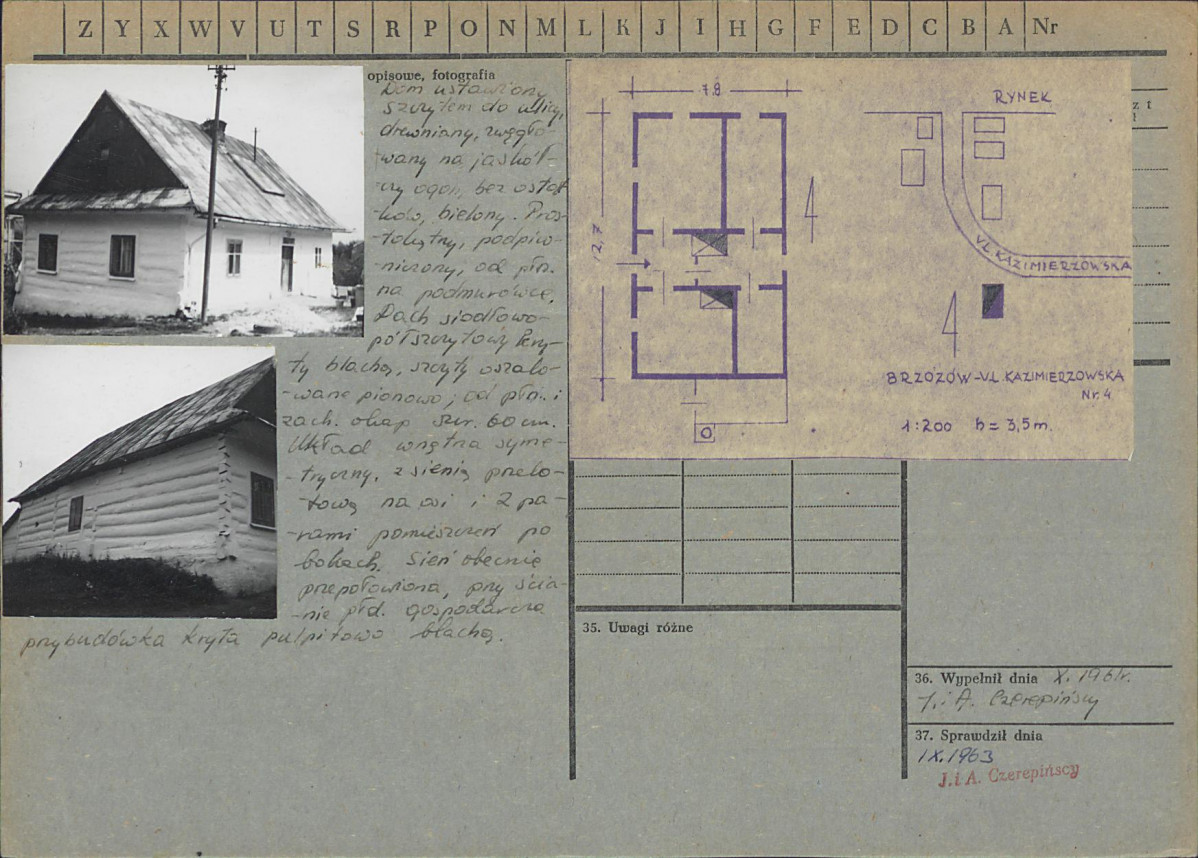 Z Y X W V U T S R P O N M L K J I H G F E D C B A Nr
opisowe, fotografia
Dom ustawiony
szczytem do ulicy,
drewniany, zwęgło-
wany na jaskół-
czy ogon, bez ostat-
ków, bielony. Pros-
tokątny, podpiw-
niczony, od płn.
na podmurówce.
Dach siodłowo-
półszczytowy kry-
ty blachą, szczyty oszalo-
wane pionowo, od płn. i
zach. okap szer. 60 cm.
Układ wnętrza syme-
tryczny, z sienią przelo-
tową na osi i 2 pa-
rami pomieszczeń po
bokach. Sień obecnie
przepołowiona, przy ścia-
nie płd. gospodarcza
przybudówka kryta pulpitowo blachą.
7.8
12,7
RYNEK
UL. KAZIMIERZOWSKA
BRZOZÓW-UL. KAZIMIERZOWSKA
Nr. 4
1:200 h = 3,5 m.
z t
35. Uwagi różne
36. Wypełnił dnia X. 1961r.
J. i A. Czerepińscy
37. Sprawdził dnia
IX. 1963
J. i A. Czerepińscy